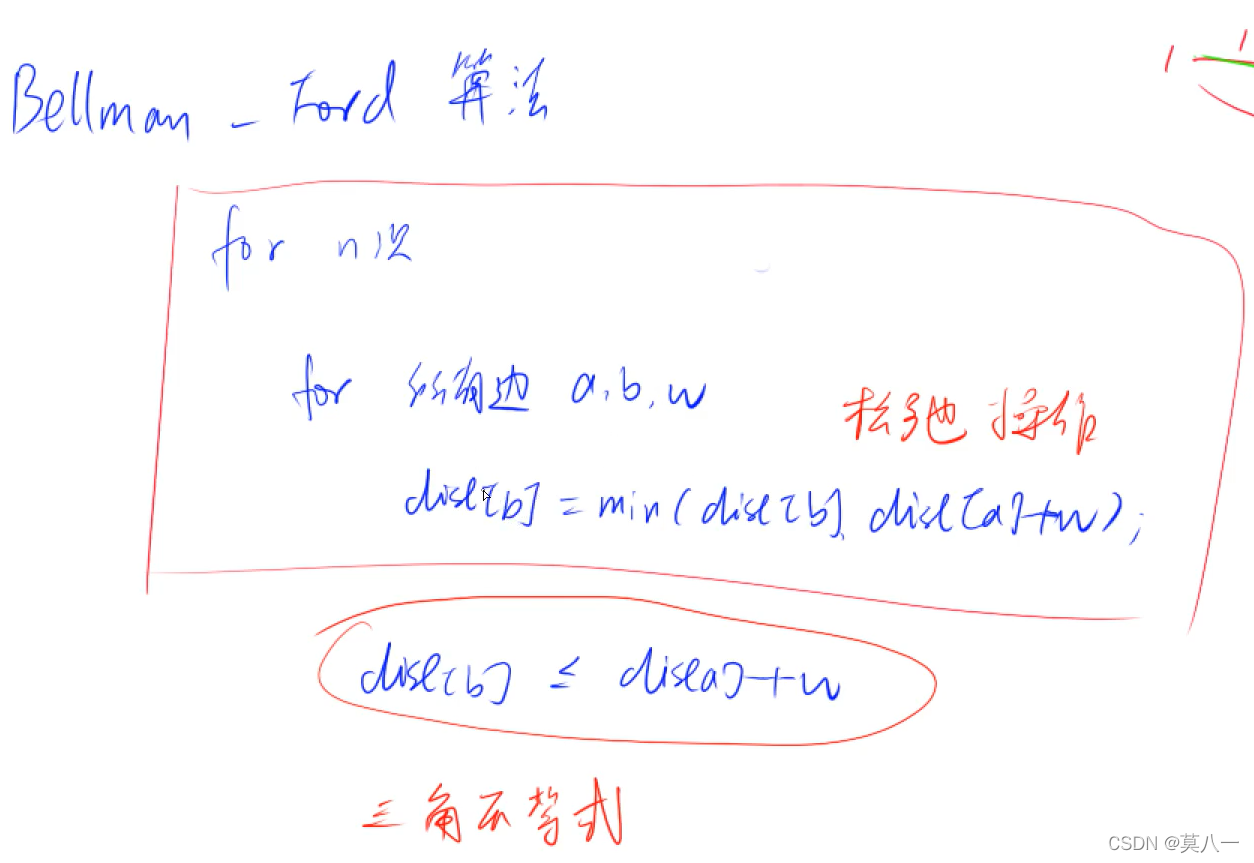 Bellman - Ford 算法
1 1
for n次
for 所有边 a,b,w
松弛操作
dist[b] = min(dist[b], dist[a]+w);
dist[b] ≤ dist[a]+w
三角不等式
CSDN @莫八一